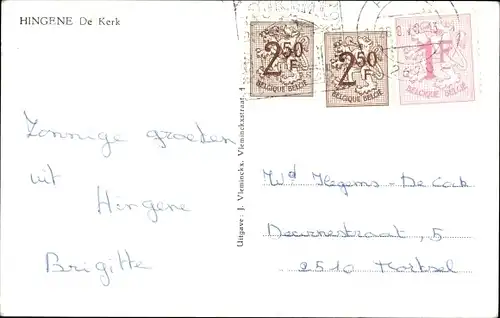 HINGENE De Kerk
2.50
F
BELGIQUE BELGIË
2.50
F
BELGIQUE BELGIË
1F
BELGIQUE BELGIË
Zonnige groeten
uit
Hingene
Brigitte
Uitgave: J. Vleminckx, Vleminckxstraat, 1
Wd Hegems - De Cock
Deurnestraat, 5
2510 Mortsel